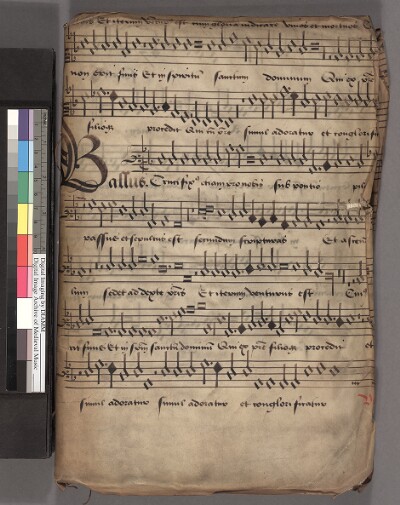 Et iterum venturus est cum gloria iudicare vivos et mortuos
non erit finis Et in spiritum sanctum dominum Qui ex pre
filioqz procedit Qui cum pre simul adoratur et conglorifi
Bassus. Crucifixus etiam pro nobis sub pontio pil
passus et sepultus est secundum scripturas Et ascen
lum sedet ad dexteram pris Et iterum venturus est Cui
ni finis Et in spm sanctu dominum Qui ex pre filioqz procedit et
simul adoratur simul adoratur et conglorificatur
Digital Imaging by DIAMM
Digital Image Archive of Medieval Music